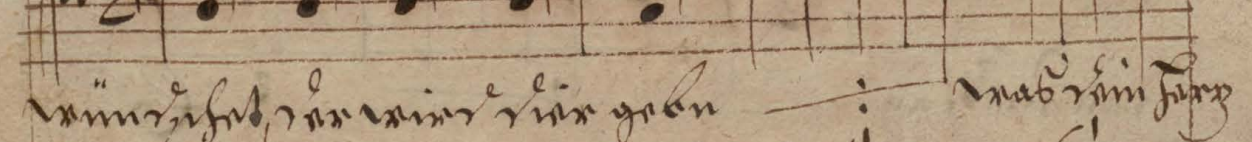 wündschet, der wird dier gebn ./. was dein Hertz